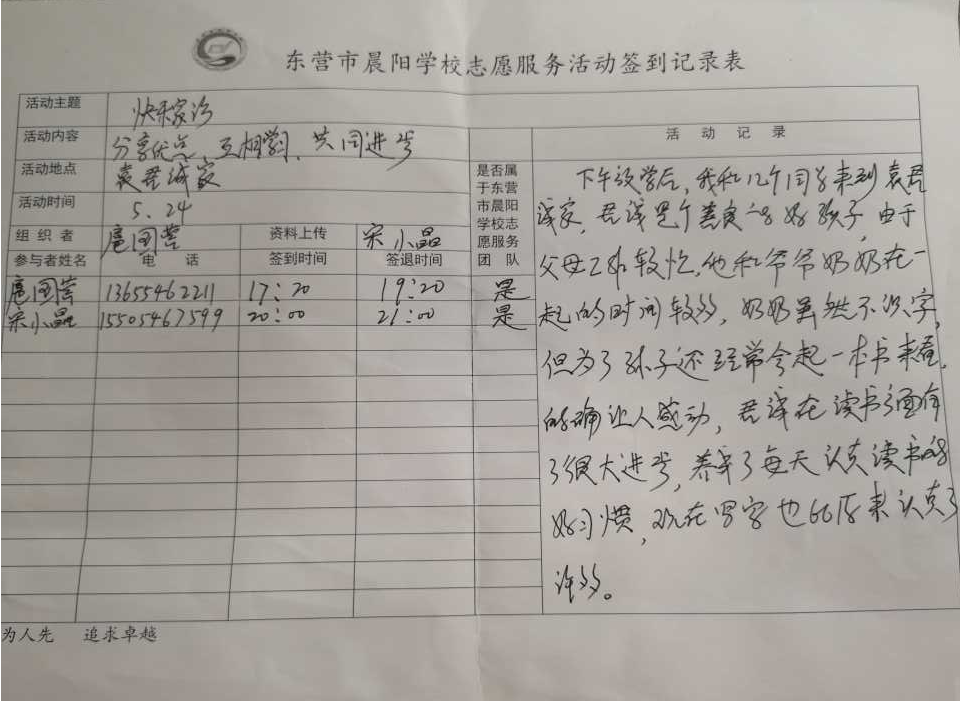 东营市晨阳学校志愿服务活动签到记录表
活动主题 快乐家访
活动内容 分享优点、互相学习、共同进步
活动地点 袁君诚家
活动时间 5.24
组织者 扈国营 资料上传 宋小晶
参与者姓名 电话 签到时间 签退时间
是否属
于东营
市晨阳
学校志
愿服务
团队
扈国营 13655462211 17:20 19:20 是
宋小晶 15505467599 20:00 21:00 是
活动记录
下午放学后,我和几个同学来到袁君
诚家,君诚是个善良的好孩子,由于
父母工作较忙,他和爷爷奶奶在一
起的时间较多,奶奶虽然不识字,
但为了孙子还经常拿起一本书来看,
的确让人感动,君诚在读书方面有
了很大进步,养成了每天认真读书的
好习惯,现在写字也比原来认真了
许多。
为人先 追求卓越